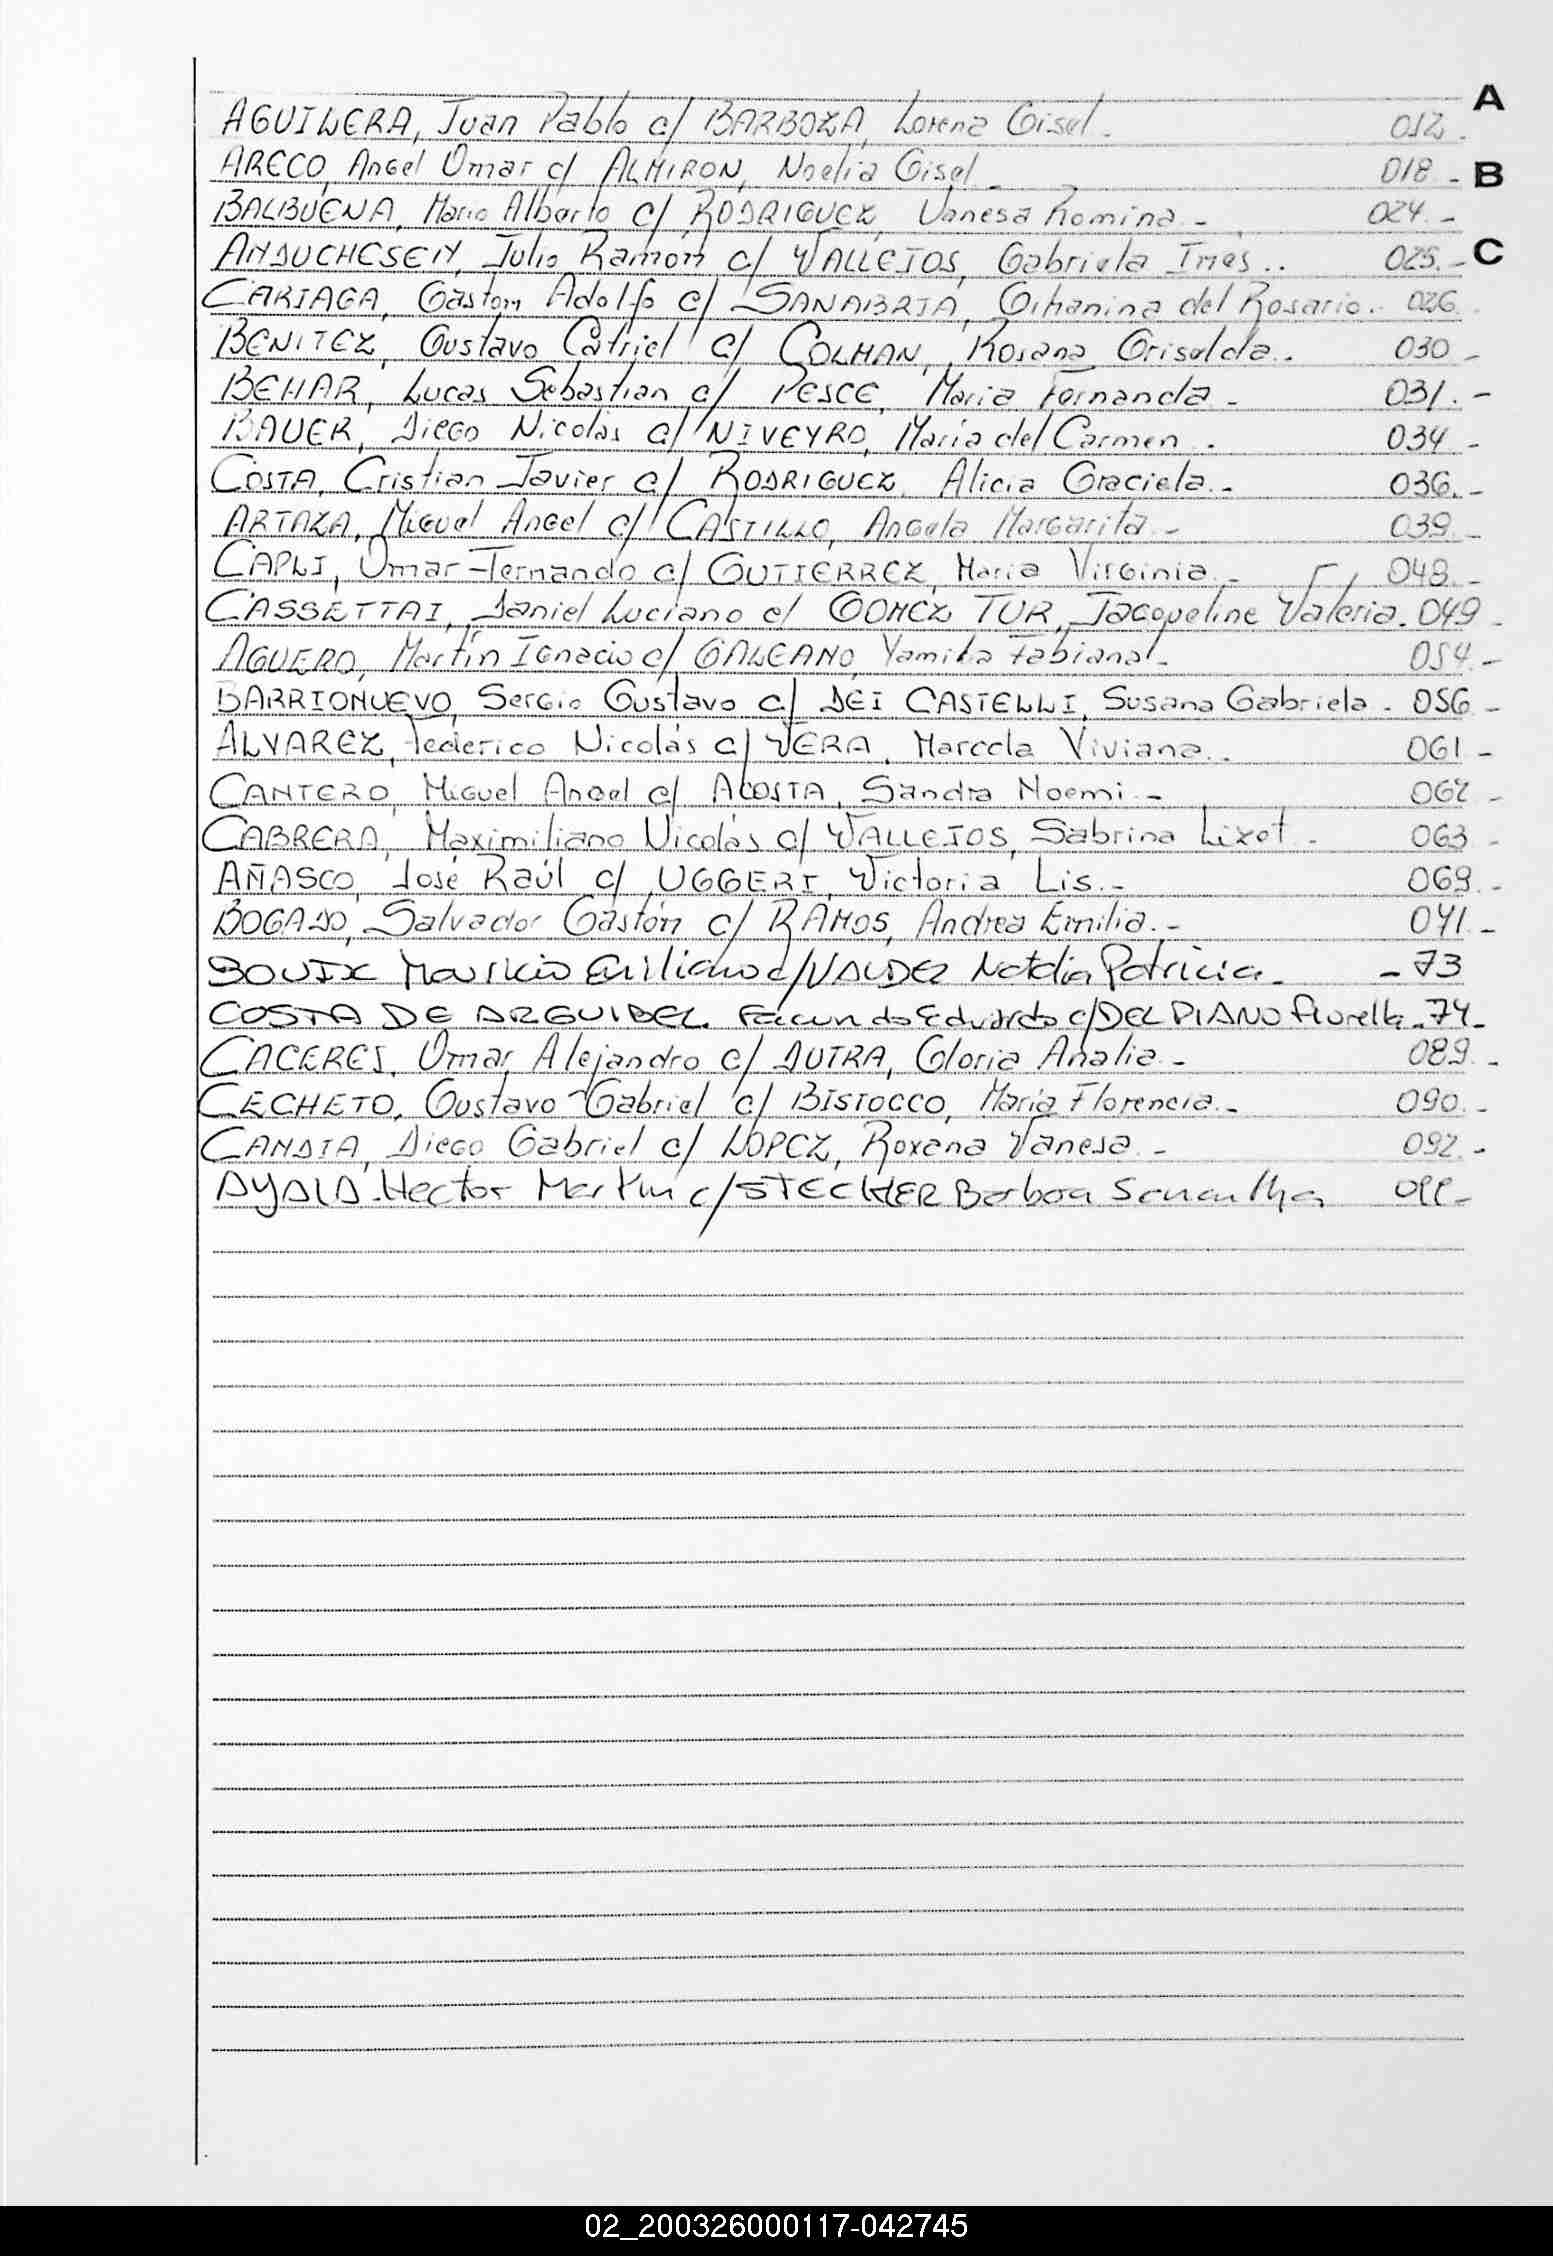 A
AGUILERA, Juan Pablo c/ BARBOZA, Lorena Gisel. 012.
ARECO, Angel Omar c/ ALMIRON, Noelia Gisel - 018 -
B
BALBUENA, Mario Alberto c/ RODRIGUEZ, Vanesa Romina - 024. -
ANDUCHESEN, Julio Ramon c/ VALLEJOS, Gabriela Ines.. 025. -
C
CARIAGA, Gaston Adolfo c/ SANABRIA, Gihanina del Rosario. 026.
BENITEZ, Gustavo Catriel c/ COLMAN, Rosana Griselda.. 030 -
BEHAR, Lucas Sebastian c/ PESCE, Maria Fernanda - 031. -
BAUER, Diego Nicolás c/ NIVEYRO, María del Carmen. 034 -
COSTA, Cristian Javier c/ RODRIGUEZ, Alicia Graciela. - 036. -
ARTAZA, Miguel Angel c/ CASTILLO, Angela Margarita. - 039. -
CAPLI, Omar Fernando c/ GUTIERREZ, Maria Virginia. - 048. -
CASSETTAI, Daniel Luciano c/ GOMEZ TUR, Jacqueline Valeria. 049 -
AGUERO, Martín Ignacio c/ GALEANO, Yamila Fabiana. - 054. -
BARRIONUEVO, Sergio Gustavo c/ DEI CASTELLI, Susana Gabriela - 056 -
ALVAREZ, Federico Nicolás c/ VERA, Marcela Viviana.. 061 -
CANTERO, Miguel Angel c/ ACOSTA, Sandra Noemi. - 062 -
CABRERA, Maximiliano Nicolás c/ VALLEJOS, Sabrina Lizet - 063 -
AÑASCO, José Raúl c/ UGGERI, Victoria Lis. - 069. -
BOGADO, Salvador Gastón c/ RAMOS, Andrea Emilia. - 071. -
BOUIX Mauricio Emiliano c/ VALDEZ Natalia Patricia - - 73
COSTA DE ARGUIBEL. Facundo Eduardo c/ DEL PIANO Fiorella - 74 -
CACERES, Omar Alejandro c/ DUTRA, Gloria Analia - 089. -
CECHETO, Gustavo Gabriel c/ BISTOCCO, María Florencia. - 090. -
CANDIA, Diego Gabriel c/ LOPEZ, Roxana Vanesa. - 092. -
AYALA. Hector Martin c/ STECHER Barbara Samantha
02_200326000117-042745